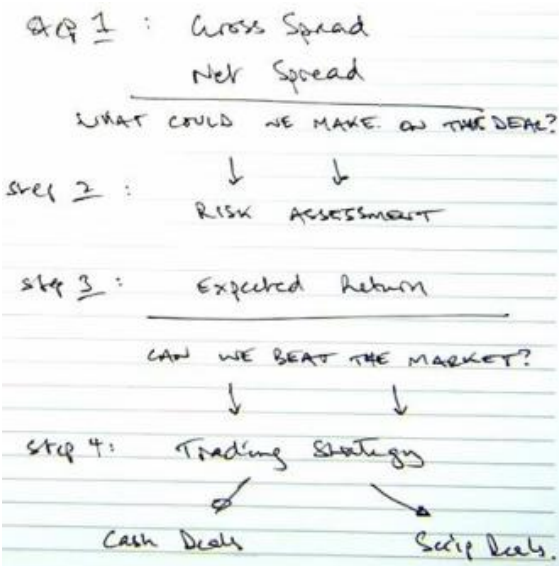 step 1 : Gross Spread
Net Spread
WHAT COULD WE MAKE ON THE DEAL?
step 2 :
RISK ASSESSMENT
step 3 : Expected Return
CAN WE BEAT THE MARKET?
step 4: Trading Strategy
Cash Deals Scrip Deals.